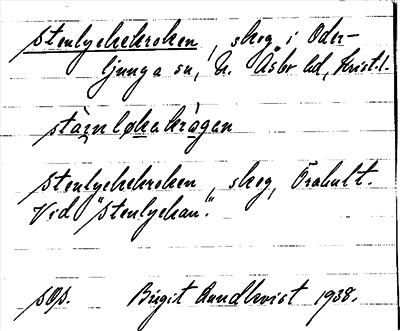 Stenlyckekroken, skog i Oder-
ljunga sn, N. Åsbo hd, Krist. l.
stàɪnløkakrågan
Stenlyckekroken, skog, Örahult.
Vid "Stenlyckan".
sOp. Birgit Lundkvist 1938.